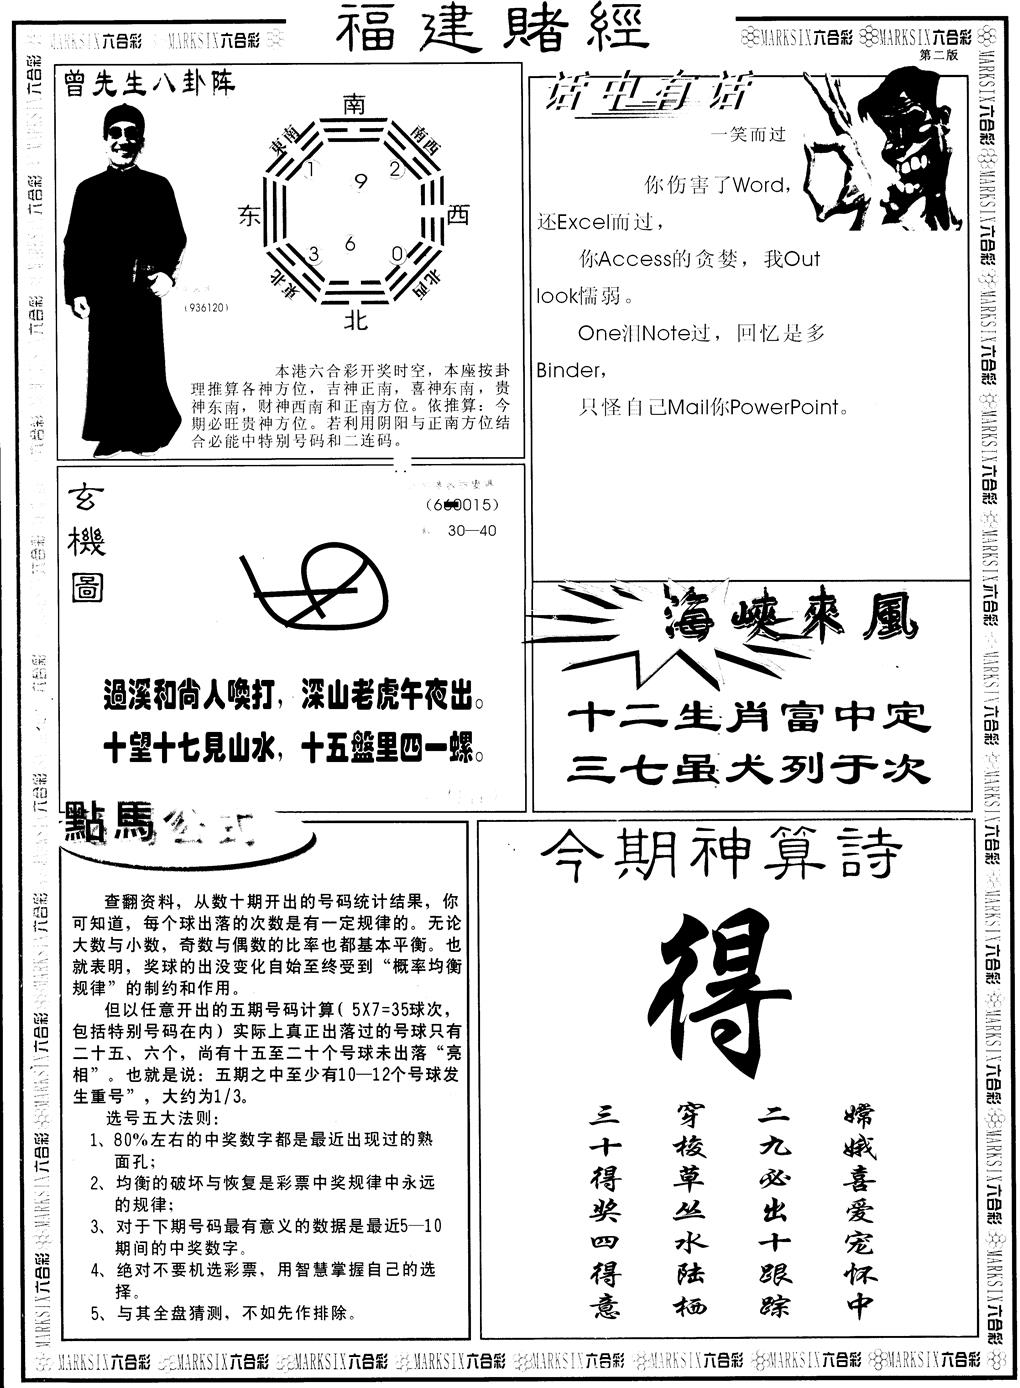 福建賭經
MARKSIX六合彩 MARKSIX六合彩
MARKSIX六合彩 MARKSIX六合彩
第二版
曾先生八卦阵
南
東南 南西
1 9 2
东 西
3 6 0
東北 北西
北
(936120)
本港六合彩开奖时空，本座按卦
理推算各神方位，吉神正南，喜神东南，贵
神东南，财神西南和正南方位。依推算：今
期必旺贵神方位。若利用阴阳与正南方位结
合必能中特别号码和二连码。
话中有话
一笑而过
你伤害了Word，
还Excel而过，
你Access的贪婪，我Out
look懦弱。
One泪Note过，回忆是多
Binder，
只怪自己Mail你PowerPoint。
玄機圖
30—40
過溪和尚人喚打，深山老虎午夜出。
十望十七見山水，十五盤里四一螺。
海峽來風
十二生肖富中定
三七虽犬列于次
點馬公式
查翻资料，从数十期开出的号码统计结果，你
可知道，每个球出落的次数是有一定规律的。无论
大数与小数，奇数与偶数的比率也都基本平衡。也
就表明，奖球的出没变化自始至终受到“概率均衡
规律”的制约和作用。
但以任意开出的五期号码计算( 5X7=35球次，
包括特别号码在内）实际上真正出落过的号球只有
二十五、六个，尚有十五至二十个号球未出落“亮
相”。也就是说：五期之中至少有10—12个号球发
生重号”，大约为1/3。
选号五大法则：
1、80%左右的中奖数字都是最近出现过的熟
面孔；
2、均衡的破坏与恢复是彩票中奖规律中永远
的规律；
3、对于下期号码最有意义的数据是最近5—10
期间的中奖数字。
4、绝对不要机选彩票，用智慧掌握自己的选
择。
5、与其全盘猜测，不如先作排除。
今期神算詩
得
嫦娥喜爱宠怀中
二九必出十跟踪
穿梭草丛水陆栖
三十得奖四得意
MARKSIX六合彩 MARKSIX六合彩 MARKSIX六合彩 MARKSIX六合彩 MARKSIX六合彩 MARKSIX六合彩 MARKSIX六合彩 MARKSIX六合彩